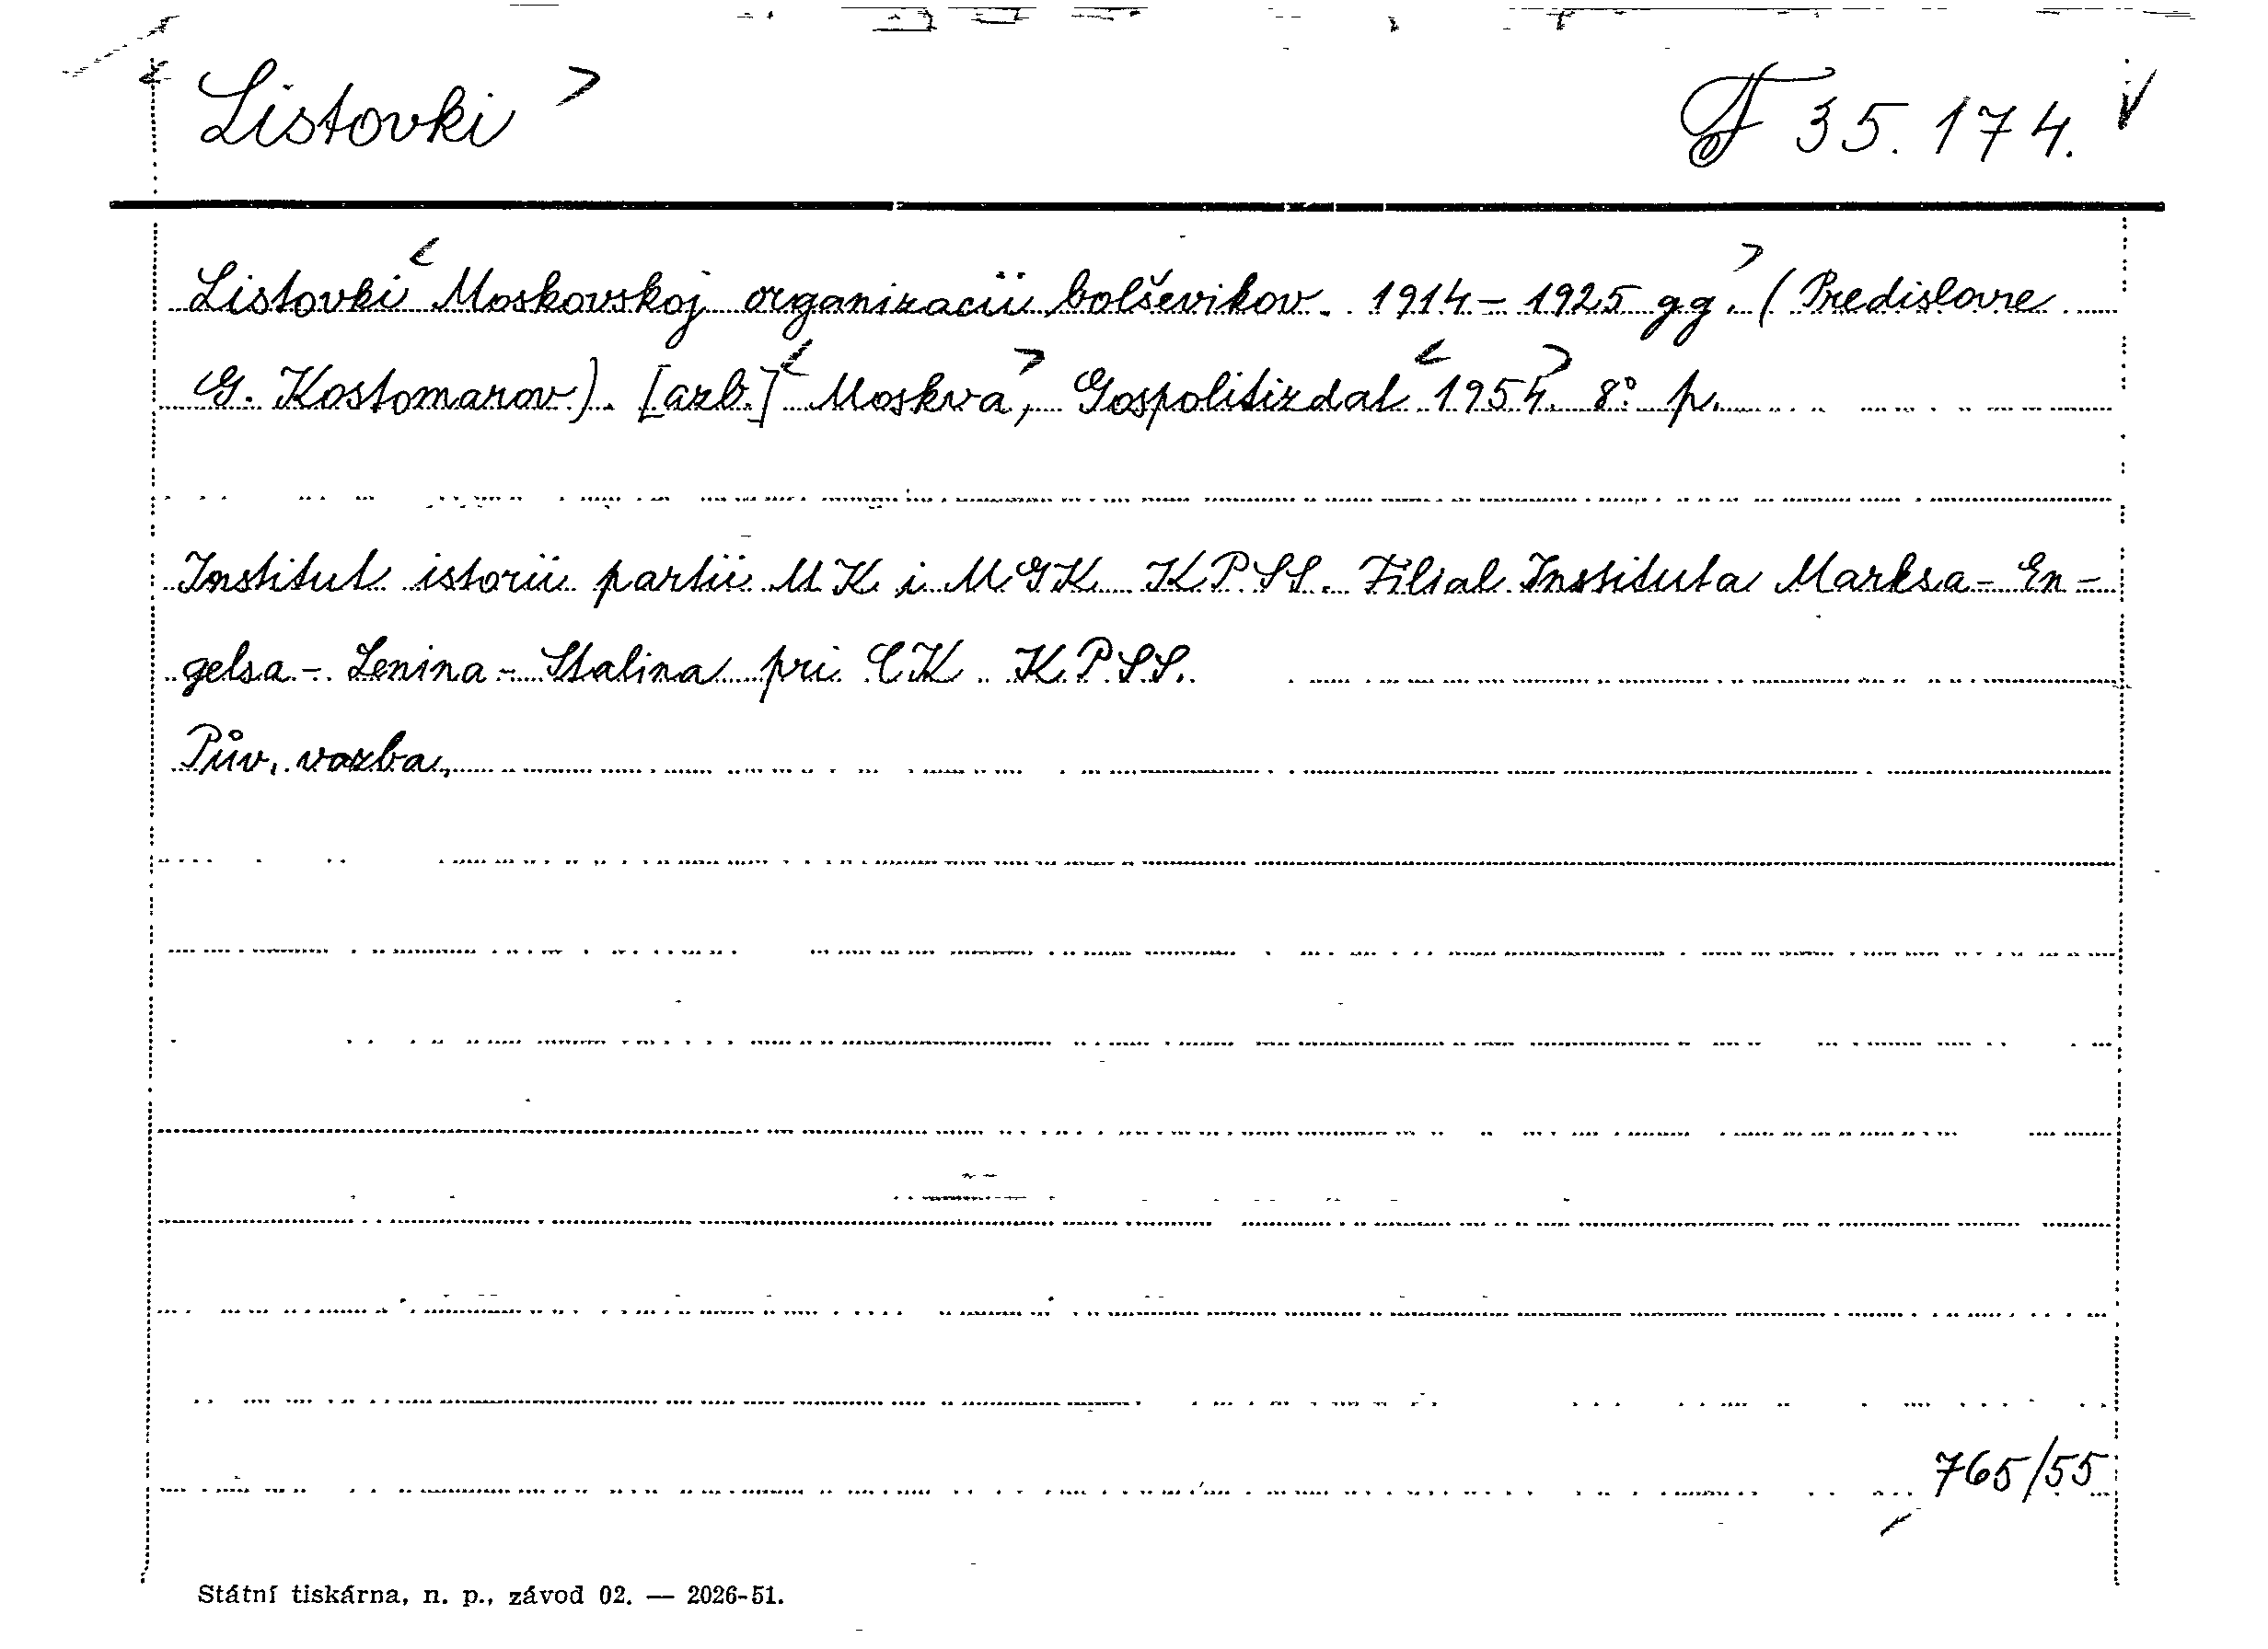 Listovki F 35.174.
Listovki Moskovskoj organizacii bolševikov. 1914-1925 gg. (Predislovie
G. Kostomarov). [azb.] Moskva, Gospolitizdat 1954. 8° p.
Institut istorii partii MK i MGK KPSS. Filial Instituta Marksa-En-
gelsa-Lenina-Stalina pri CK KPSS.
Pův. vazba.
765/55
Státní tiskárna, n. p., závod 02. — 2026-51.